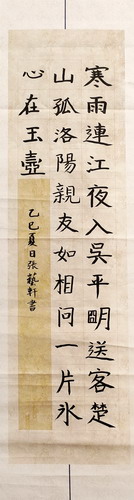 寒雨連江夜入吳平明送客楚
山孤洛陽親友如相問一片氷
心在玉壺
乙巳夏日張藝軒書